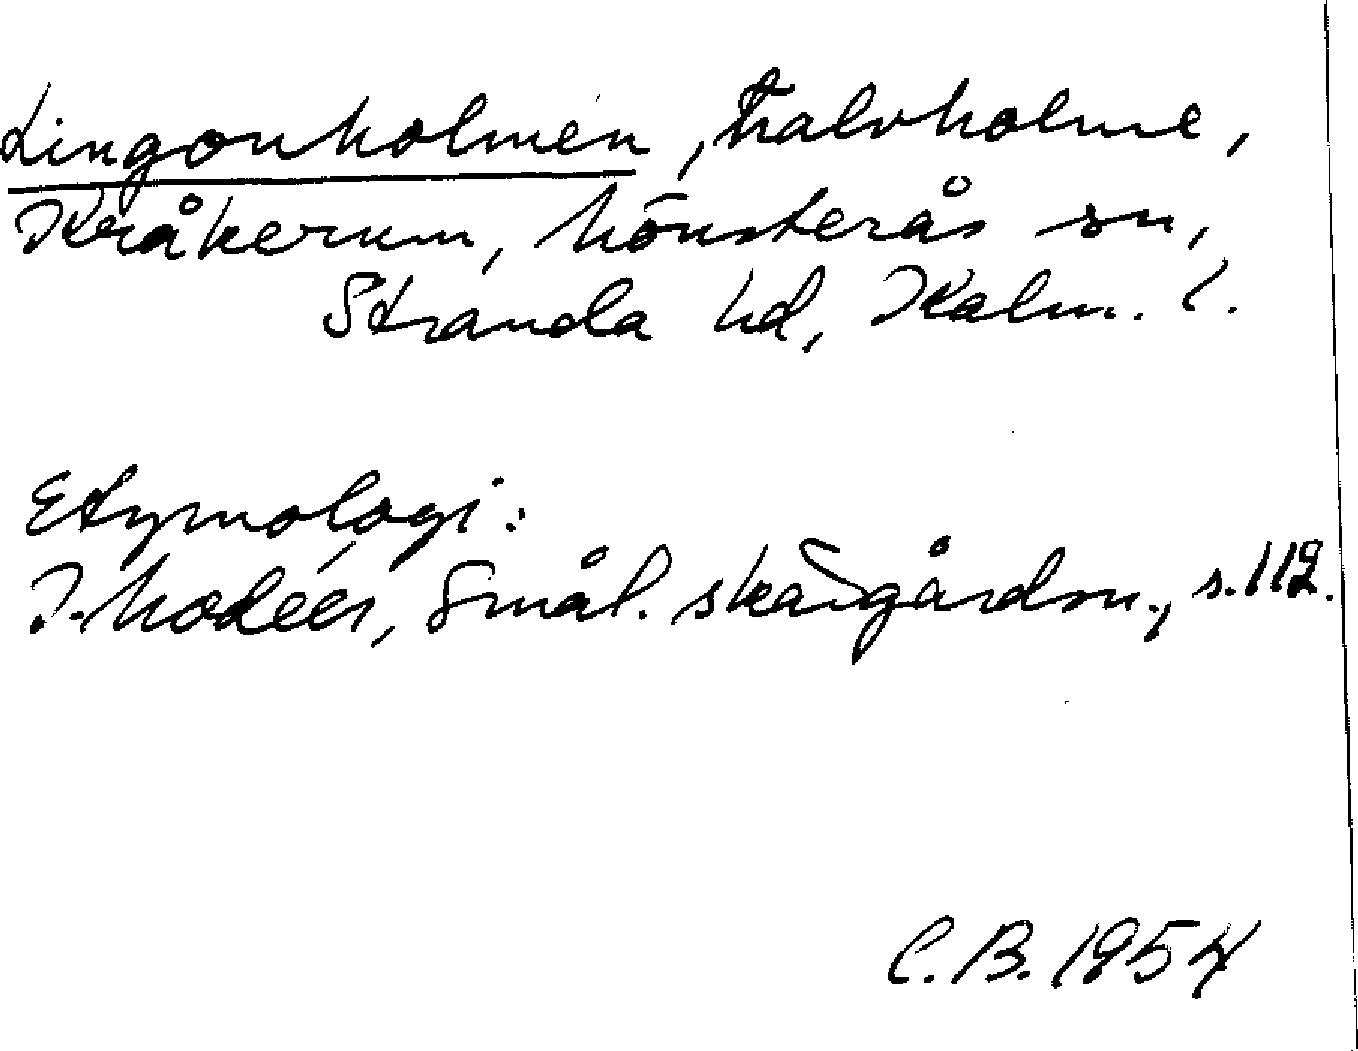 Lingonholmen, halvholme,
Kråkerum, Mönsterås sn,
Stranda hd, Kalm. l.
Etymologi:
I. Modéer, Smål. skärgårdsn., s. 112.
C. B. 1954